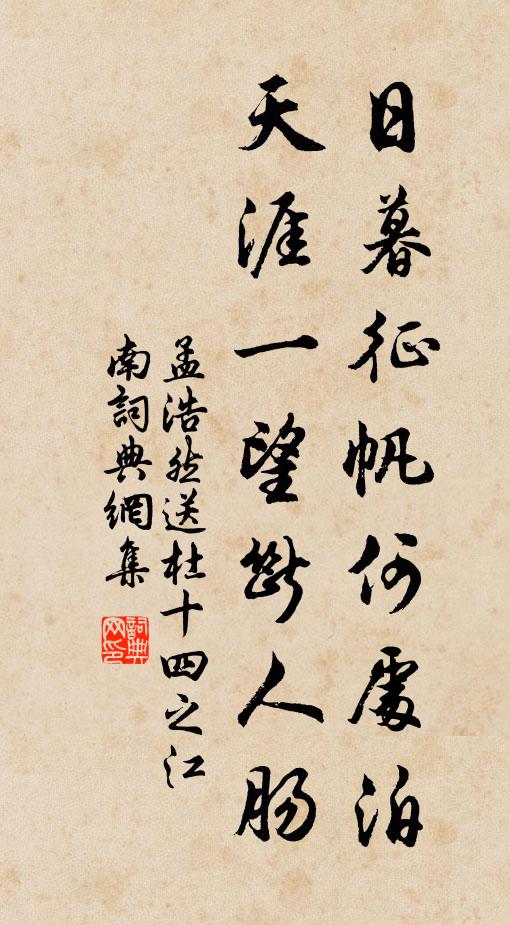 日暮征帆何處泊
天涯一望斷人腸
孟浩然送杜十四之江
南詞典網集
詞典
网印